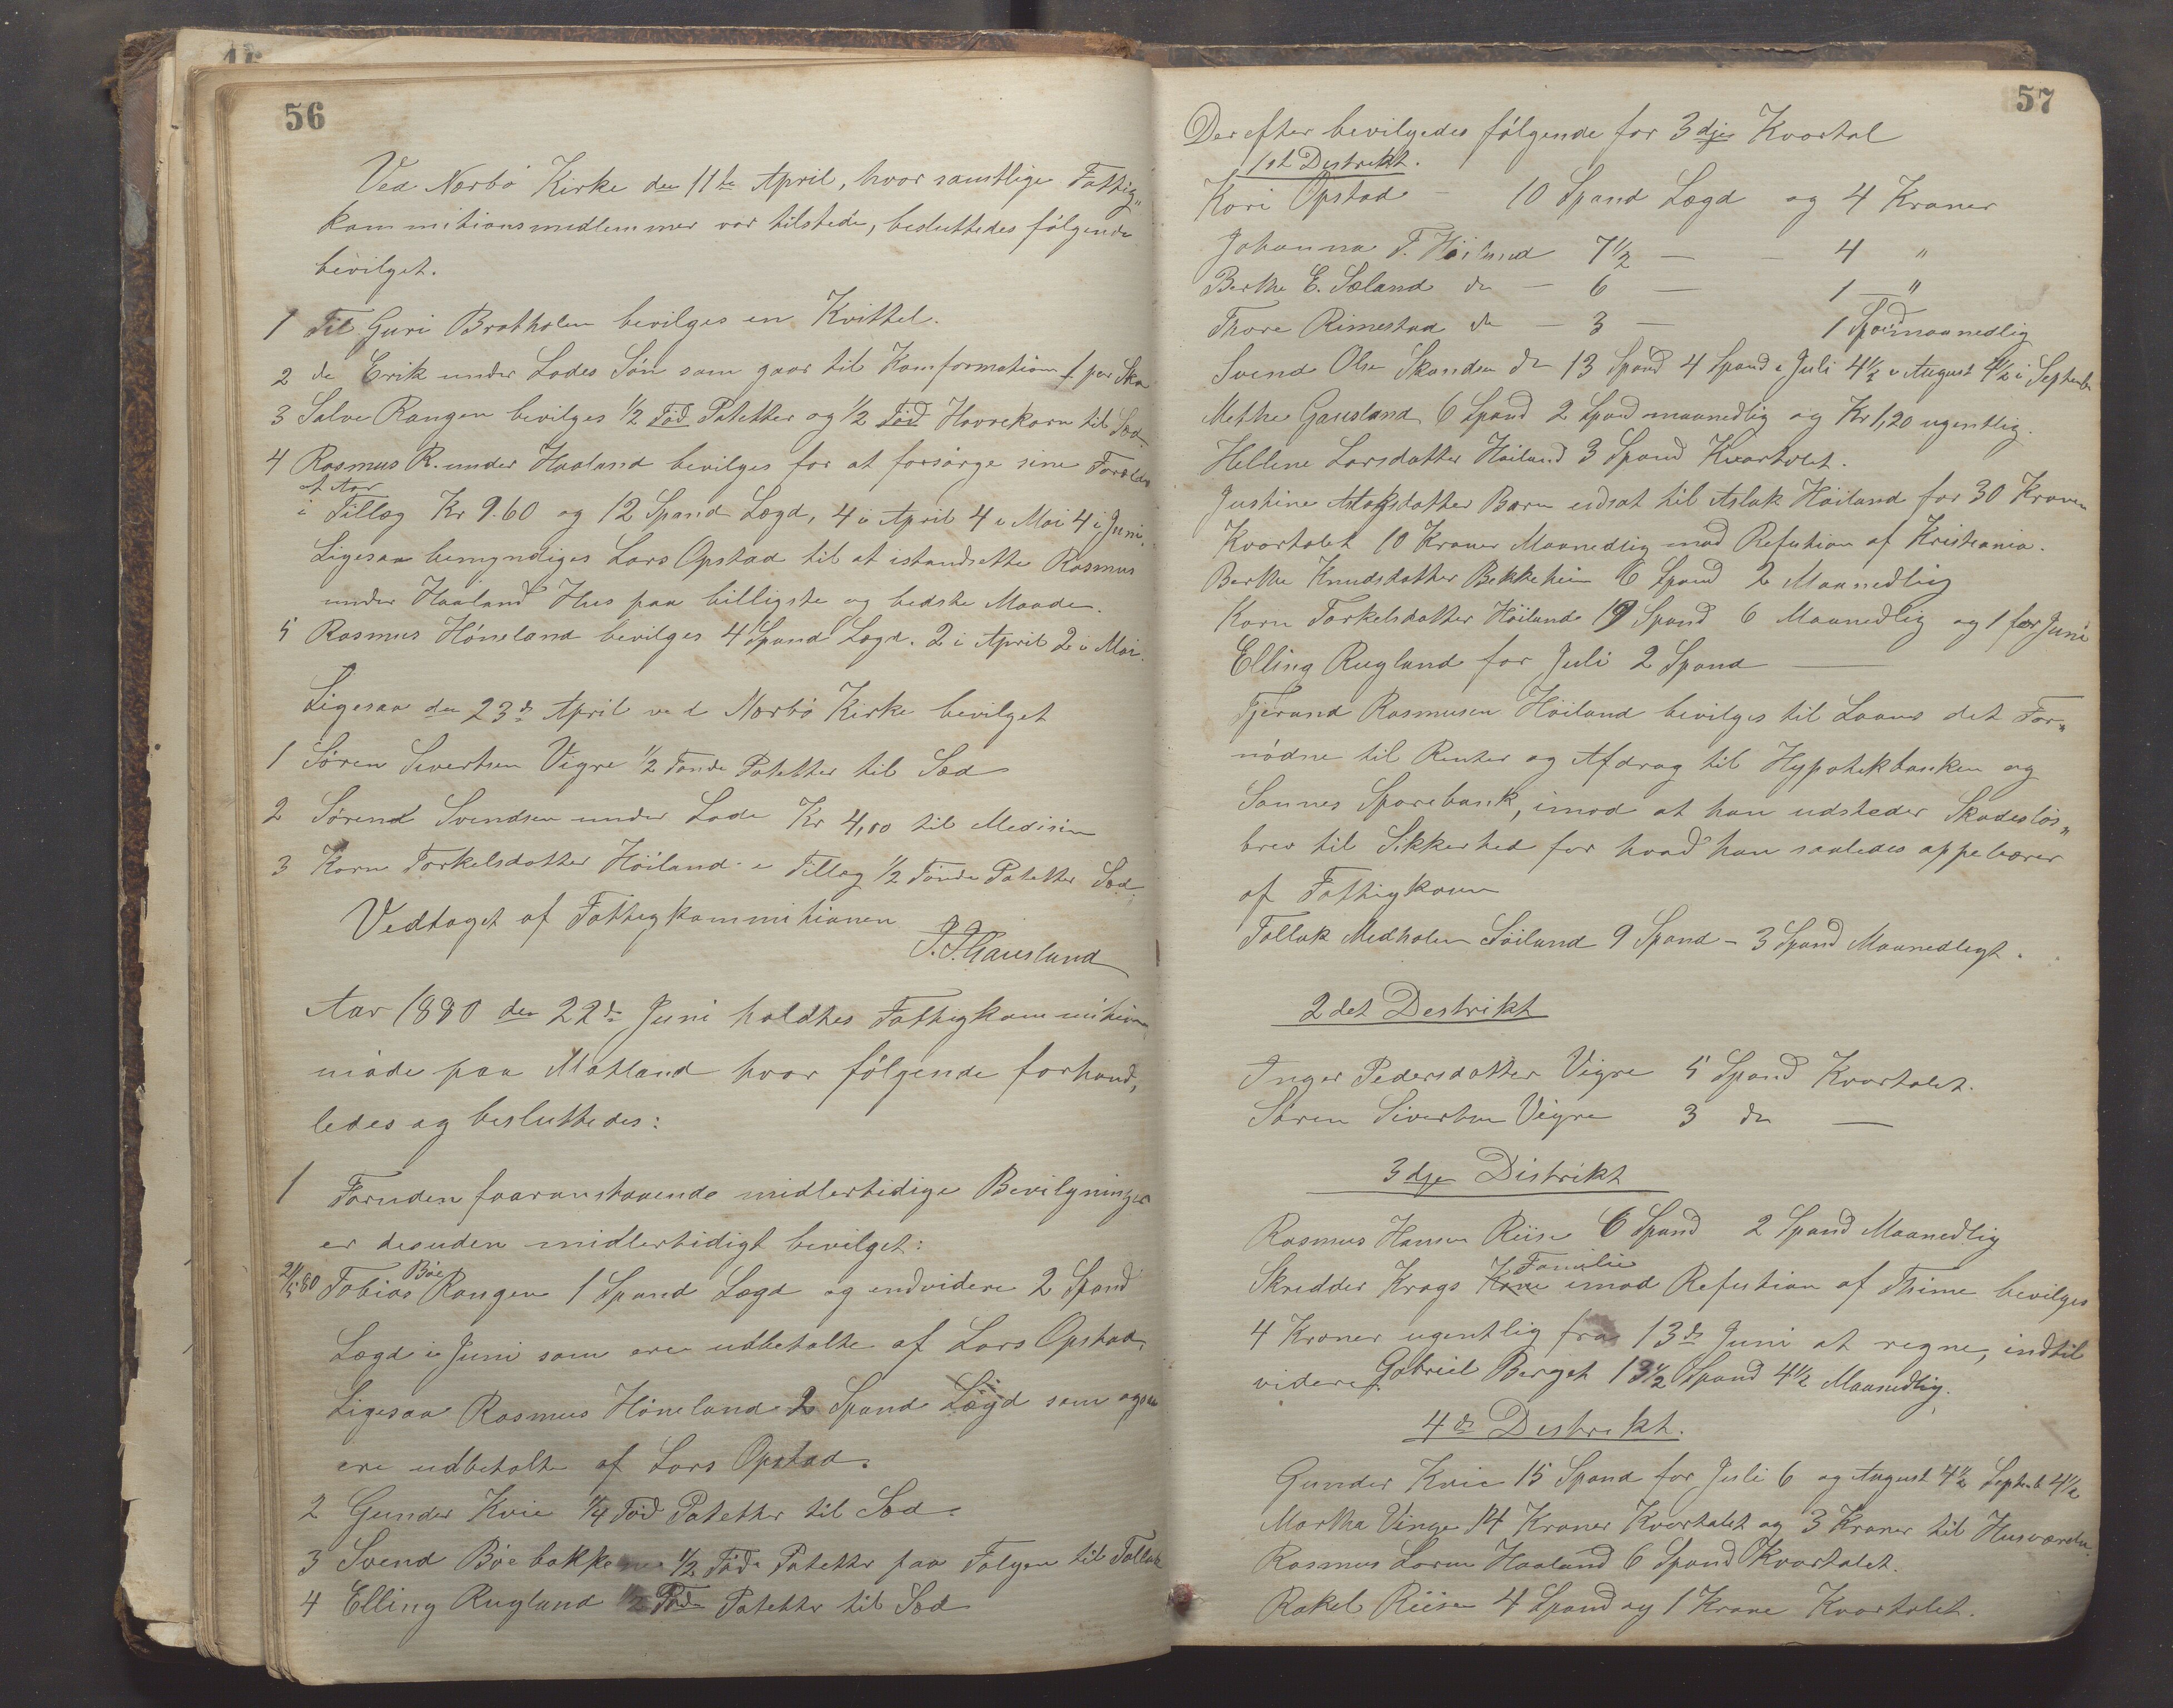 56
Ved Nærbø Kirke den 11te April, hvor samtlige Fattig„
kommitionsmedlemmer var tilstede, besluttedes følgende
bevilget.
1 Til Guri Bratholen bevilges en Kvittel.
2 do Erik under Lodes Søn som gaar til Komformation 1 par Sko
3 Salve Rangen bevilges 1/2 Tød Poteter og 1/2 Tød Havrekorn til Sæd.
4 Rasmus R. under Haaland bevilges for at forsørge sine Foreldre
et Aar
i Tillæg Kr 9.60 og 12 Spand Lægd, 4 i April 4 i Mai 4 i Juni.
Ligesaa bemyndiges Lars Opstad til at istandsette Rasmus
under Haaland Hus paa billigste og bedste Maade.
5 Rasmus Høneland bevilges 4 Spand Lægd. 2 i April 2 i Mai.
Ligesaa den 23de April ved Nærbø Kirke bevilget
1 Søren Sivertsen Vigre 1/2 Tønde Potetter til Sæd
2 Sørend Svendsen under Lode Kr 4,00 til Medisin
3 Karn Torkelsdatter Høiland i Tillæg 1/2 Tønde Potetter Sæd.
Vedtaget af Fattigkommitionen
J. J. Gausland
Aar 1880 den 22de Juni holdtes Fattigkommitions
møde paa Motland hvor følgende forhand„
ledes og besluttedes:
1 Foruden foaranstaaende midlertidige Bevilgninger
er desuden midlertidigt bevilget:
21/5 80 Tobias Böe Rangen 1 Spand Lægd og endvidere 2 Spand
Lægd i Juni som ere udbetalte af Lars Opstad.
Ligesaa Rasmus Høneland 2 Spand Lægd som ogsaa
ere udbetalte af Lars Opstad.
2 Gunder Kvie 1/4 Tød Potetter til Sæd.
3 Svend Böebakken 1/2 Tøde Potetter paa Folgen til Tollak
4 Elling Rugland 1/2 Tøde Potetter til Sæd
57
Derefter bevilgedes følgende for 3dje Kvartal
1st Distrikt.
Kari Opstad – 10 Spand Lægd og 4 Kroner
Johanna T. Høiland 7 1/2 – – 4 "
Berthe E. Sæland do – 6 – 1 – "
Thore Rimestad do – 3 – 1 Spand maanedlig
Svend Olsen Skandsen do 13 Spand 4 Spand i Juli 4 1/2 i August 4 1/2 i Septenbr
Methe Gausland 6 Spand 2 Spand maanedlig og Kr 1,20 ugentlig.
Hellene Larsdatter Høiland 3 Spand Kvartalet.
Justine Aslaksdatter Barn udsat til Aslak Høiland for 30 Kroner
Kvartalet 10 Kroner Maanedlig mod Refution af Kristiania.
Berthe Knudsdatter Bekkeheim 6 Spand 2 Maanedlig
Karn Torkelsdatter Høiland 19 Spand 6 Maanedlig og 1 for Juni
Elling Rugland for Juli 2 Spand —
Tjerand Rasmusen Høiland bevilges til Laans det For„
nødne til Renter og Afdrag til Hypotekbanken og
Sannes Sparebank, imod at han udsteder Skadesløs„
brev til Sikkerhed for hvad han saaledes oppebærer
af Fattigkassen
Tollak Medholen Søiland 9 Spand – 3 Spand Maanedligt.
2det Destrikt
Inger Pedersdatter Vigre 5 Spand Kvartalet.
Søren Sivertsen Vigre 3 do —
3dje Distrikt
Rasmus Hansen Reise 6 Spand 2 Spand Maanedlig
Skredder Krags Kone Familie imod Refution af Thime bevilges
4 Kroner ugentlig fra 13de Juni at regne, indtil
videre. Gabriel Berget 13 1/2 Spand 4 1/2 Maanedlig.
4de Destrikt.
Gunder Kvie 15 Spand for Juli 6 og August 4 1/2 Septenb 4 1/2
Martha Vinge 14 Kroner Kvartalet og 3 Kroner til Husværelse.
Rasmus Larsen Haaland 6 Spand Kvartalet.
Rakel Reisen 4 Spand og 1 Krone Kvartalet.